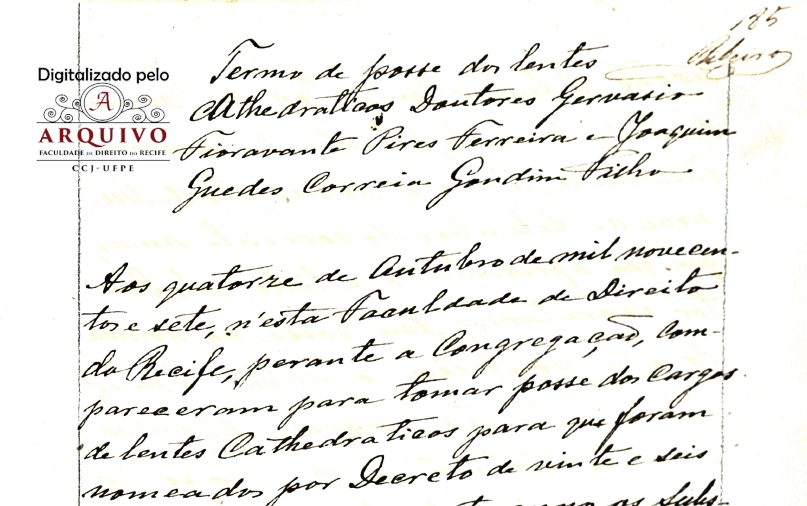 185
Ribeiro
Digitalizado pelo
A
ARQUIVO
FACULDADE DE DIREITO DO RECIFE
CCJ-UFPE
Termo de posse dos lentes
Cathedraticos Doutores Gervasio
Fioravante Pires Ferreira e Joaquim
Guedes Correia Gondim Filho
Aos quatorze de Outubro de mil novecen-
tos e sete, n'esta Faculdade de Direito
do Recife, perante a Congregação, com-
pareceram para tomar posse dos cargos
de lentes Cathedraticos para que foram
nomeados por Decreto de vinte e seis
as Subs-